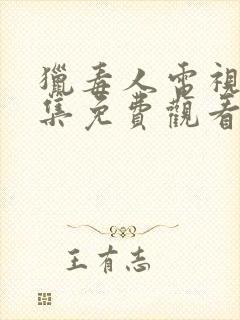 獵毒人電視
集免費觀看
王有志